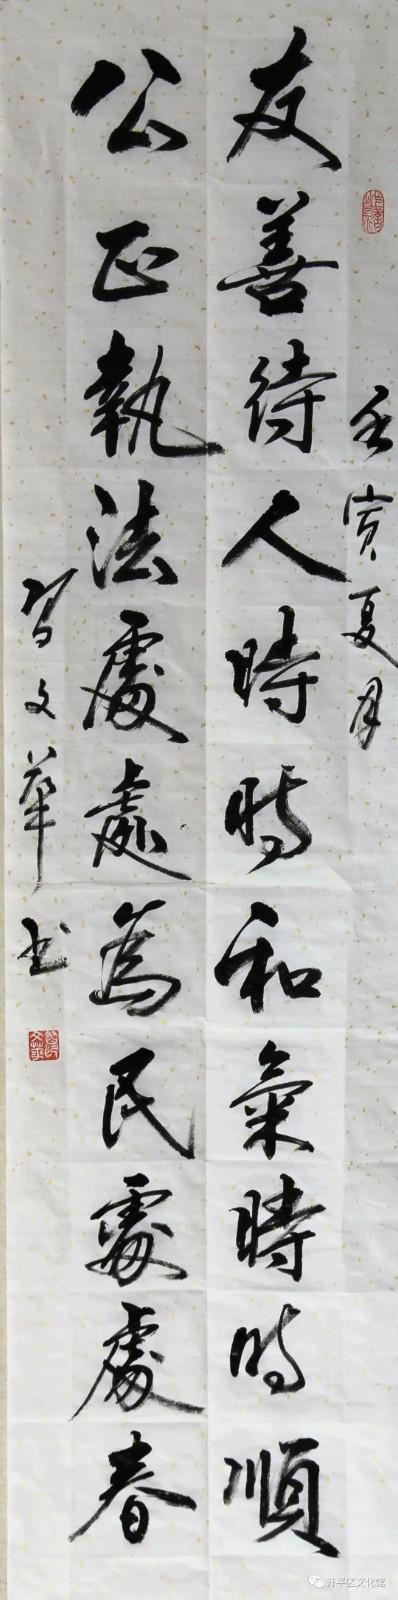 壬寅夏月
友善待人時時和氣時時順
公正執法處處為民處處春
文華书
开平区文化馆